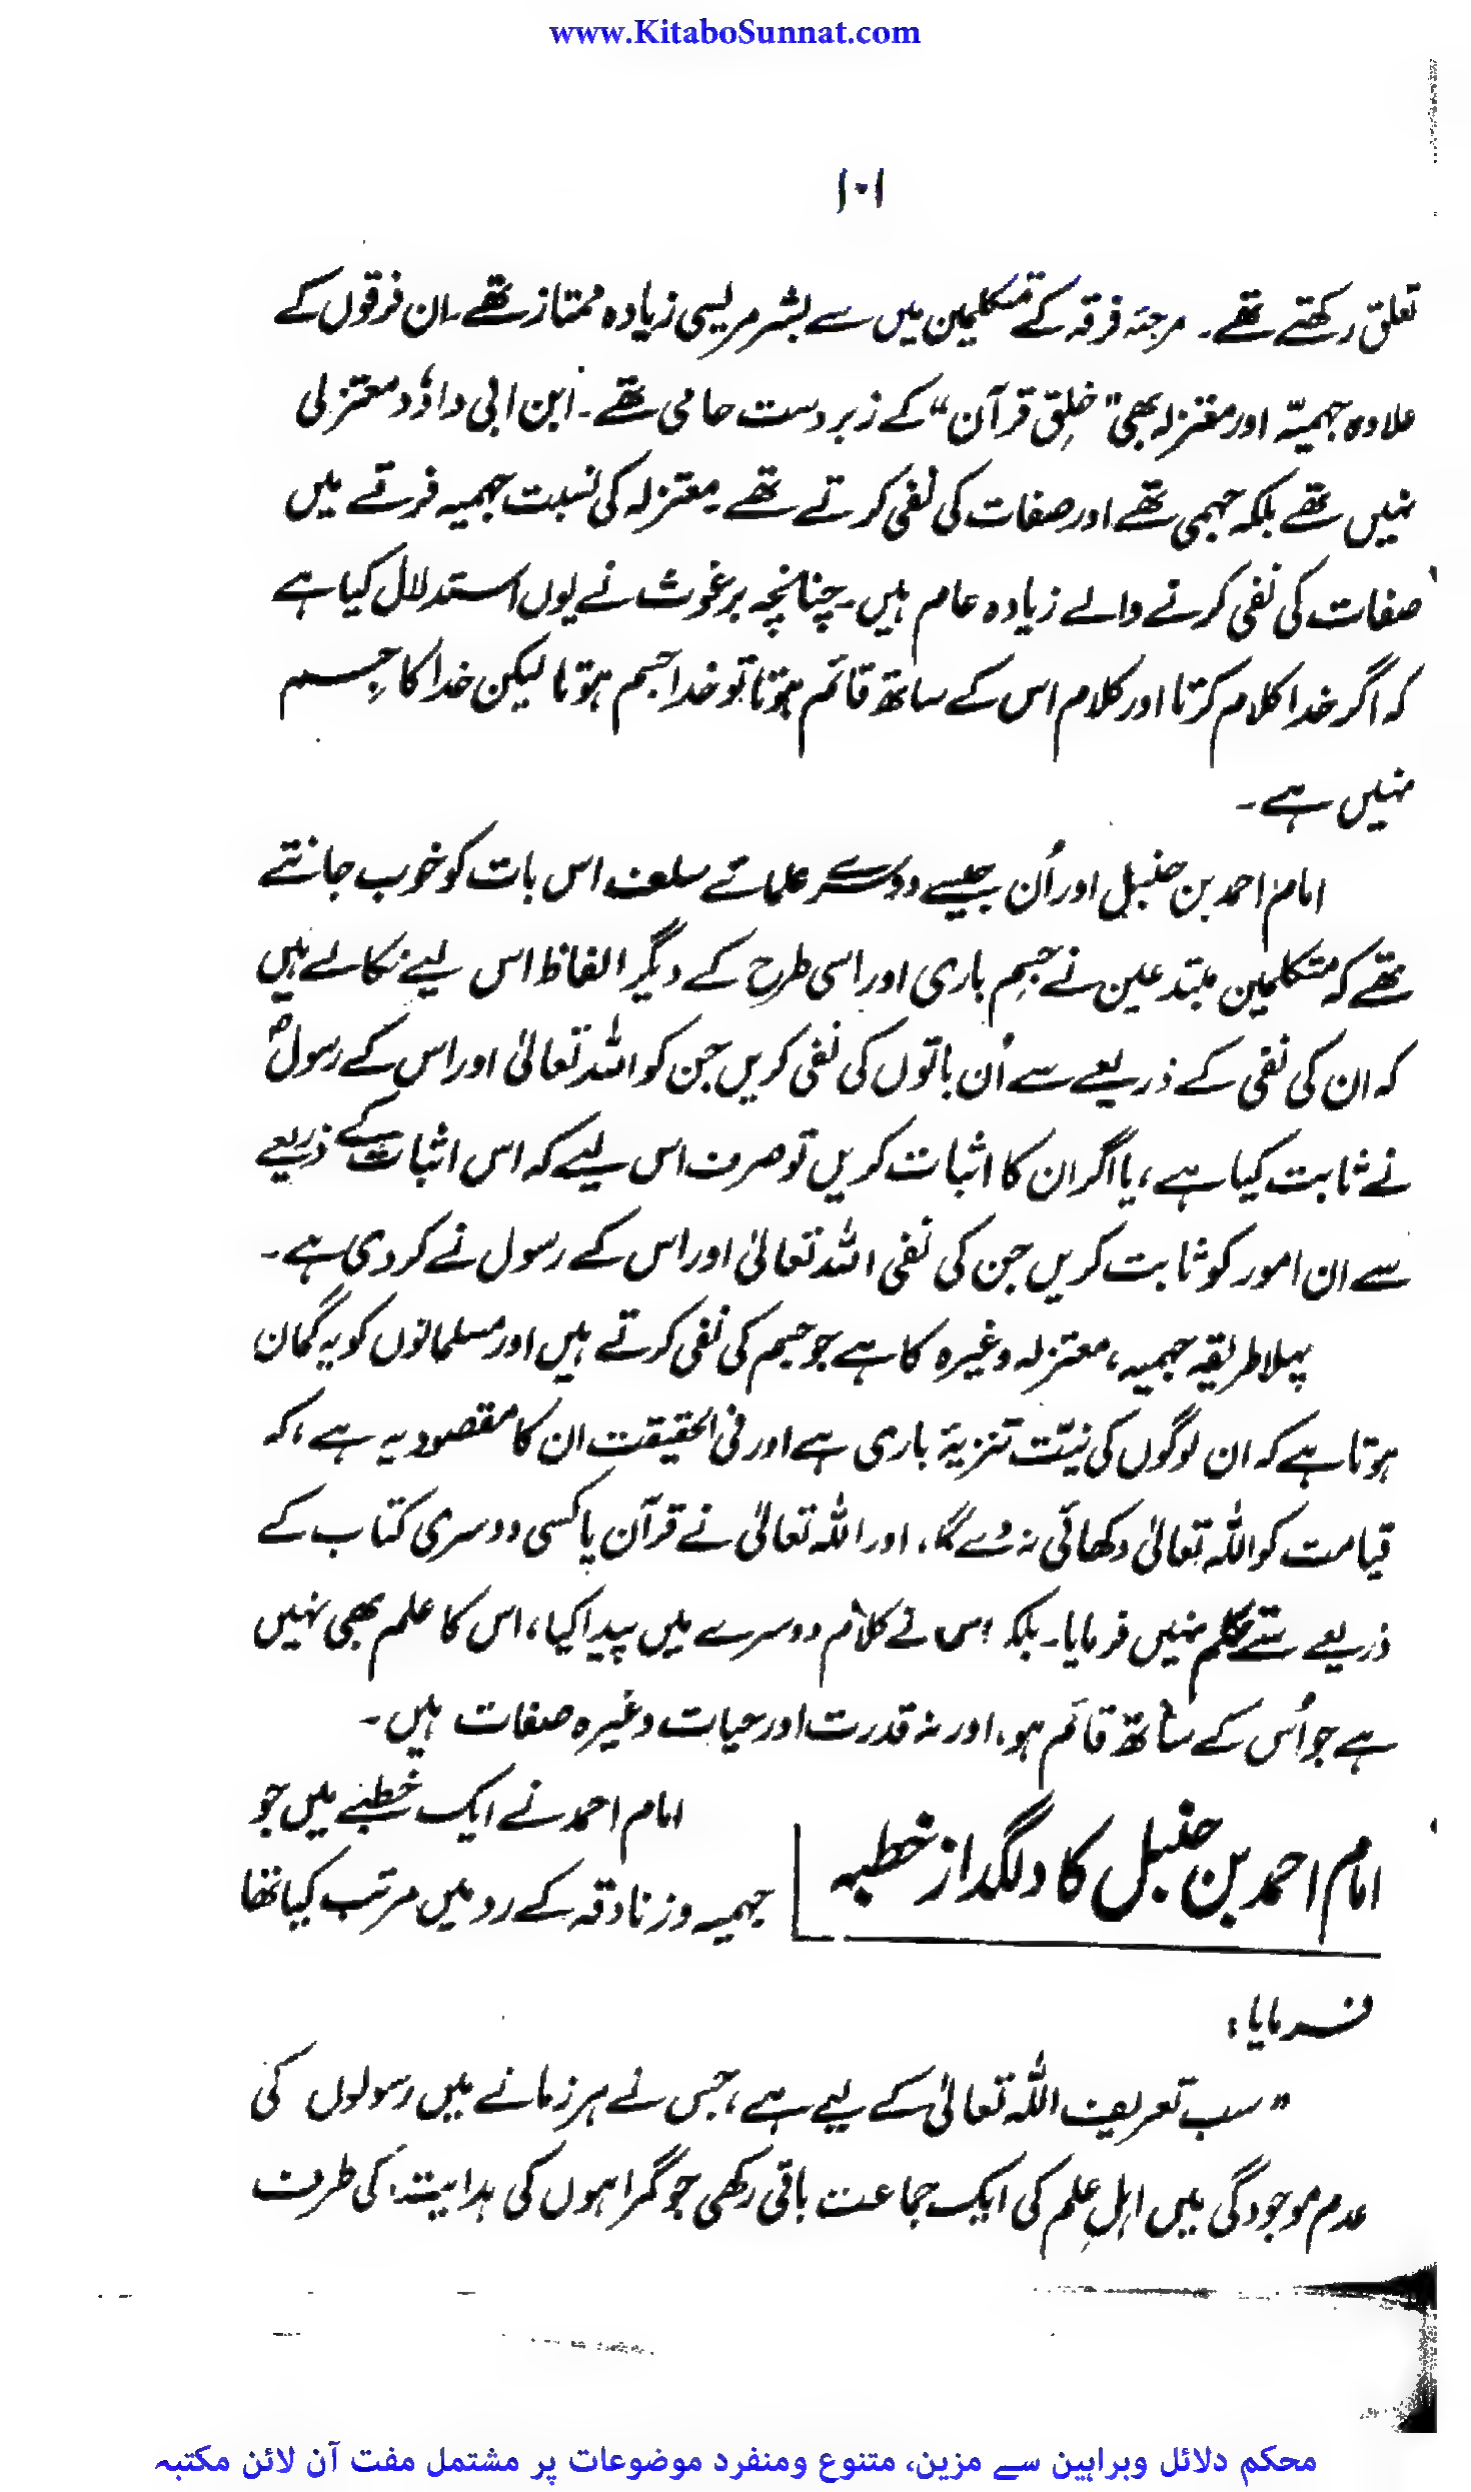 www.KitaboSunnat.com
۱۰۱
تعلق رکھتے تھے۔ مرجئہ فرقہ کے متکلمین میں سے بشر مریسی زیادہ ممتاز تھے۔ ان فرقوں کے
علاوہ جہمیّہ اور معتزلہ بھی "خلِق قرآن" کے زبردست حامی تھے۔ ابن ابی داؤد معتزلی
نہیں تھے بلکہ جہمی تھے اور صفات کی نفی کرتے تھے۔ معتزلہ کی نسبت جہمیہ فرقے میں
صفات کی نفی کرنے والے زیادہ عام ہیں۔ چنانچہ برغوث نے یوں استدلال کیا ہے
کہ اگر خدا کلام کرتا اور کلام اس کے ساتھ قائم ہوتا تو خدا جسم ہوتا لیکن خدا کا جِسم
نہیں ہے۔
امام احمد بن حنبل اور اُن جیسے دوسرے علمائے سلف اس بات کو خوب جانتے
تھے کہ متکلمین مبتدعین نے جسِم باری اور اسی طرح کے دیگر الفاظ اس لیے نکالے ہیں
کہ ان کی نفی کے ذریعے سے اُن باتوں کی نفی کریں جن کو اللہ تعالیٰ اور اس کے رسولؐ
نے ثابت کیا ہے، یا اگر ان کا اثبات کریں تو صرف اس لیے کہ اس اثبات کے ذریعے
سے ان امور کو ثابت کریں جن کی نفی اللہ تعالیٰ اور اس کے رسول نے کر دی ہے۔
پہلا طریقہ جہمیہ، معتزلہ وغیرہ کا ہے جو جسم کی نفی کرتے ہیں اور مسلمانوں کو یہ گمان
ہوتا ہے کہ ان لوگوں کی نیّت تنزیۂ باری ہے اور فی الحقیقت ان کا مقصود یہ ہے، کہ
قیامت کو اللہ تعالیٰ دکھائی نہ دے گا، اور اللہ تعالیٰ نے قرآن یا کسی دوسری کتاب کے
ذریعے سے تکلم نہیں فرمایا۔ بلکہ اس نے کلام دوسرے میں پیدا کیا، اس کا علم بھی نہیں
ہے جو اُس کے ساتھ قائم ہو، اور نہ قدرت اور حیات وغیرہ صفات ہیں۔
امام احمد بن حنبل کا دلگداز خطبہ
امام احمد نے ایک خطبے میں جو
جہمیہ و زنادقہ کے رد میں مرتب کیا تھا
فرمایا:
"سب تعریف اللہ تعالیٰ کے لیے ہے، جس نے ہر زمانے میں رسولوں کی
عدم موجودگی میں اہلِ علم کی ایک جماعت باقی رکھی جو گمراہوں کی ہدایت کی طرف
محکم دلائل وبراہین سے مزین، متنوع ومنفرد موضوعات پر مشتمل مفت آن لائن مکتبہ